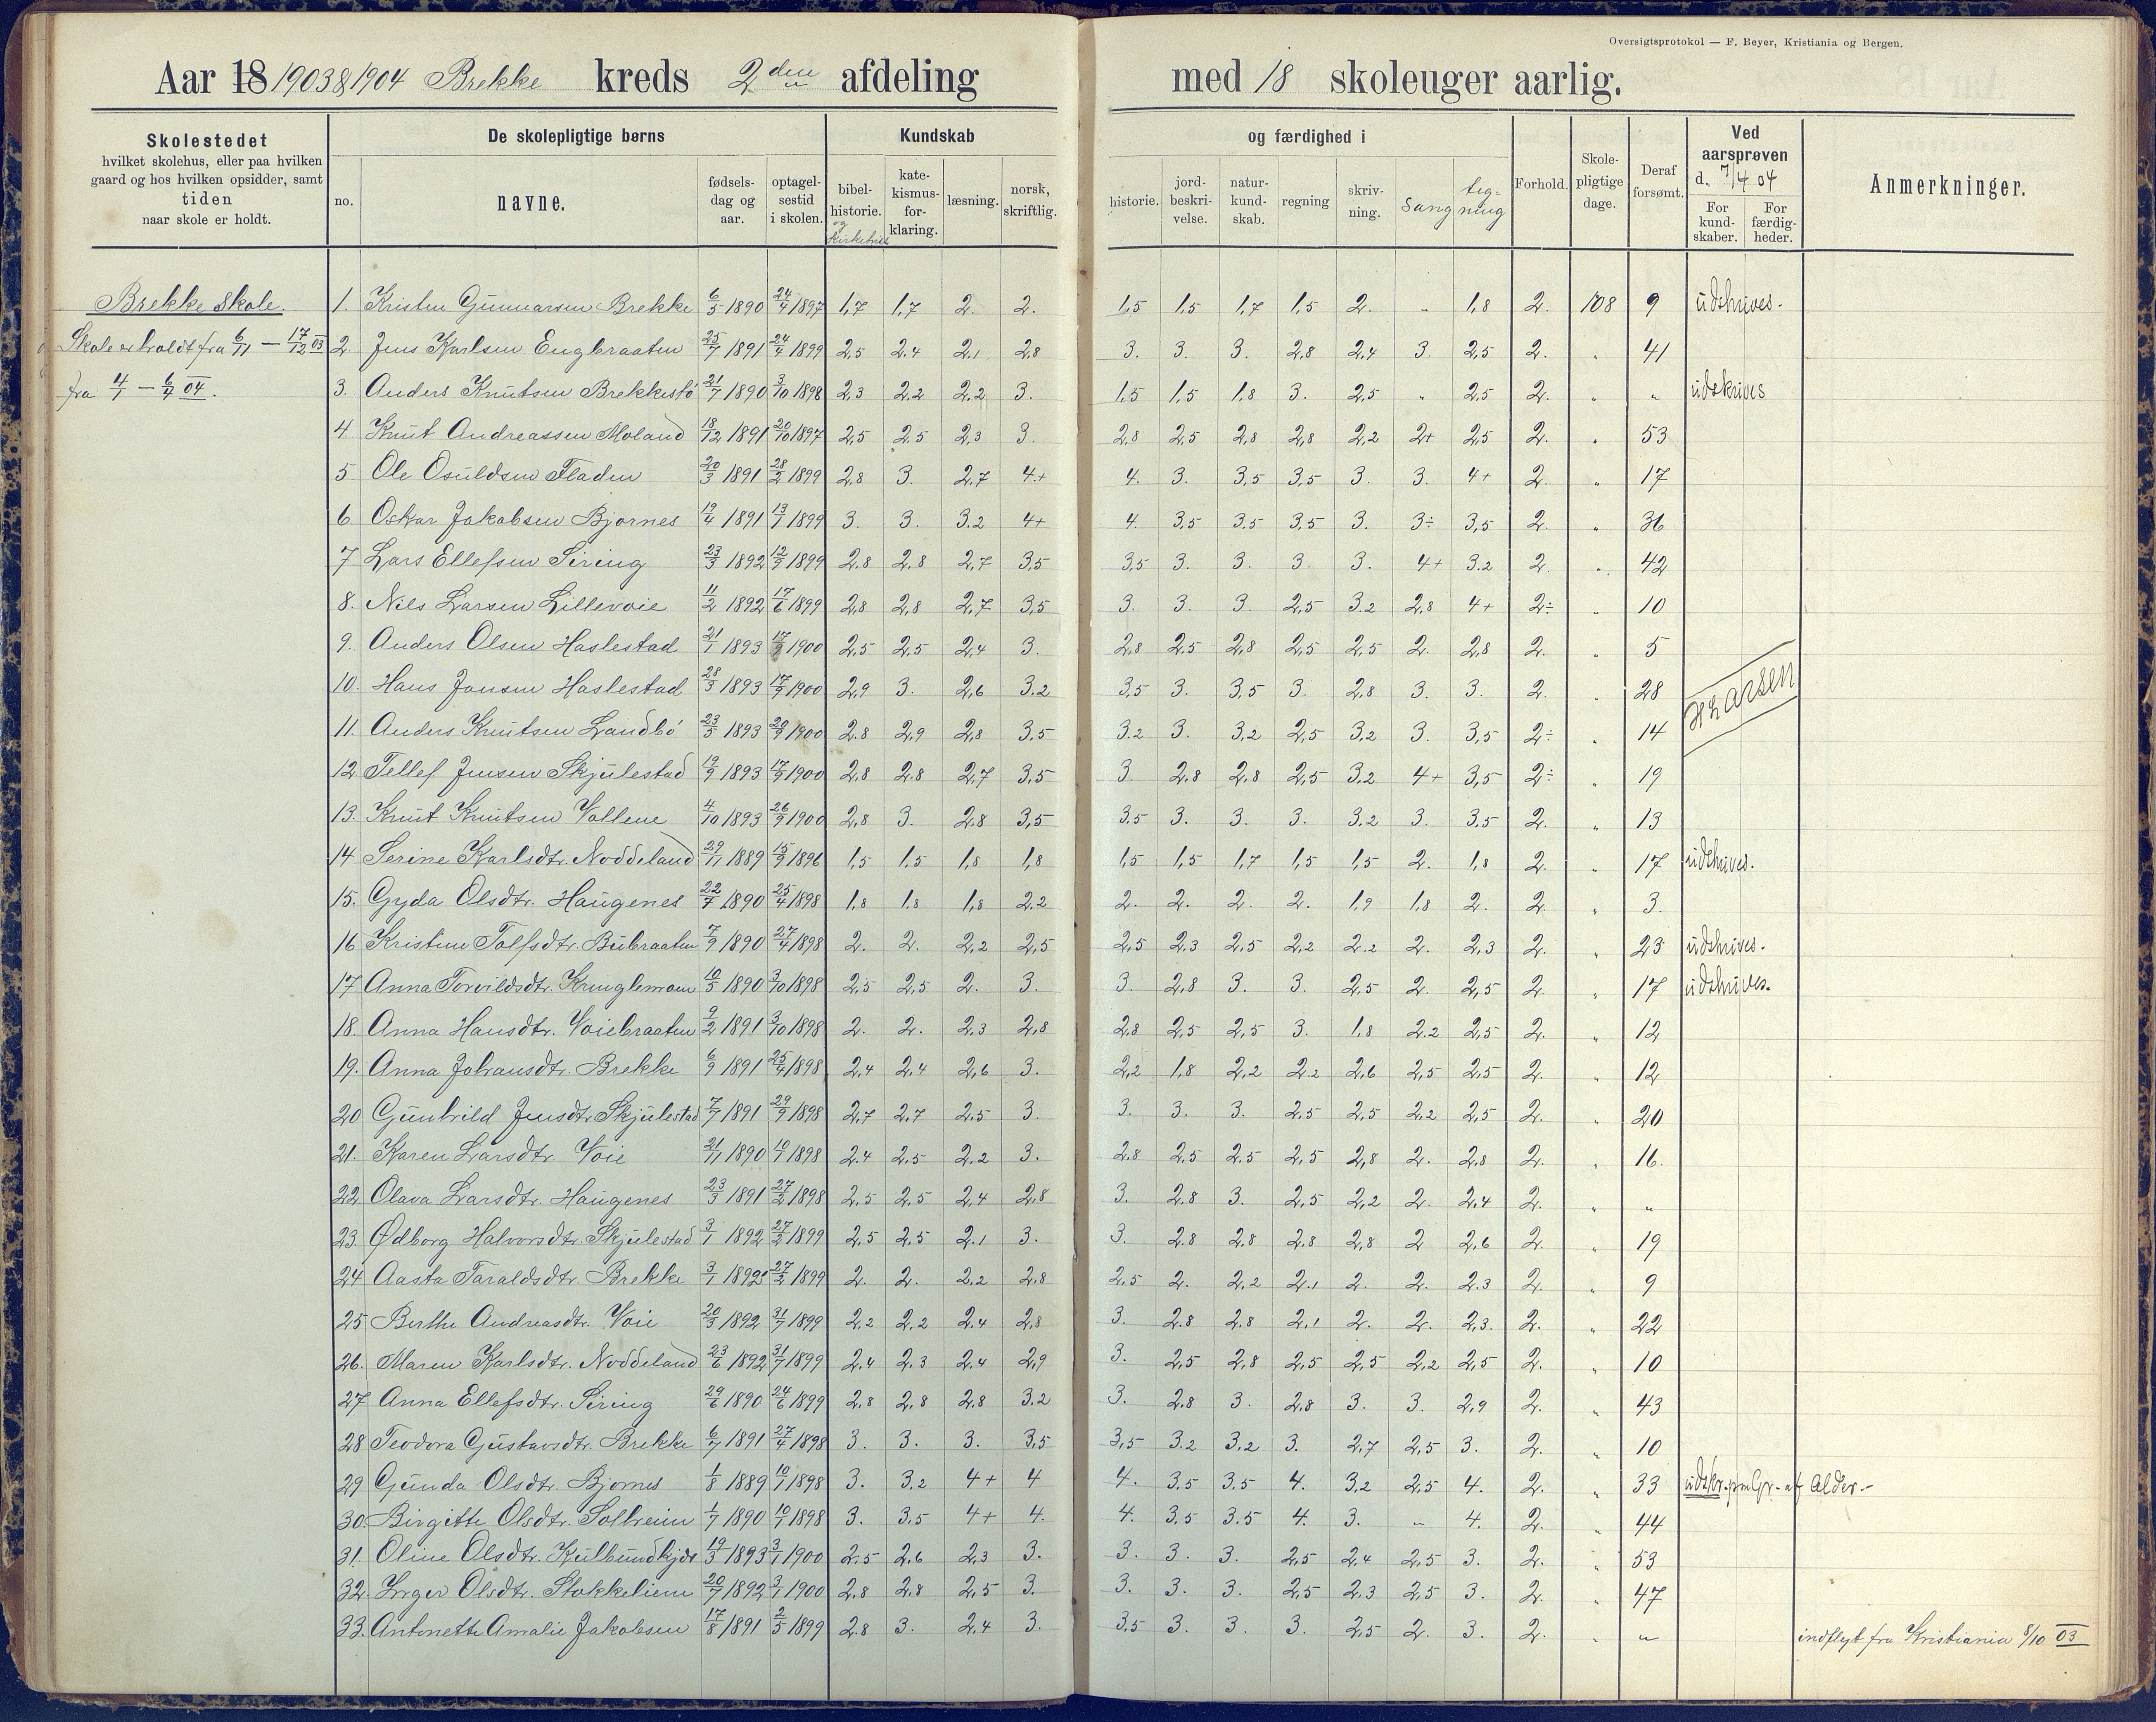 Oversigtsprotokol — F. Beyer, Kristiania og Bergen.
Aar 18 1903 & 1904 Brekke kreds 2den afdeling med 18 skoleuger aarlig.
Skolestedet
hvilket skolehus, eller paa hvilken
gaard og hos hvilken opsidder, samt
tiden
naar skole er holdt.
De skolepligtige børns
no. navne. fødsels-dag og aar. optagel-sestid i skolen.
Kundskab og færdighed i
bibel-historie. og Kirkehist. kate-kismus-for-klaring. læsning. norsk, skriftlig. historie. jord-beskri-velse. natur-kund-skab. regning skriv-ning. Sang Teg-ning
Forhold. Skole-pligtige dage. Deraf forsømt.
Ved aarsprøven d. 7/4 04
For kund-skaber. For færdig-heder.
Anmerkninger.
Brekke skole.
Skole er holdt fra 6/11 — 17/12 03
fra 4/1 — 6/4 04.
1. Kristen Gunnarsen Brekke 6/5 1890 24/4 1897 1,7 1,7 2. 2. 1,5 1,5 1,7 1,5 2. „ 1,8 2. 108 9 udskrives.
2. Jens Karlsen Engbraaten 25/7 1891 24/4 1899 2,5 2,4 2,1 2,8 3. 3. 3. 2,8 2,4 3. 2,5 2. „ 41
3. Anders Knutsen Brekkestø 21/7 1890 3/10 1898 2,3 2,2 2,2 3. 1,5 1,5 1,8 3. 2,5 „ 2,5 2. „ „ udskrives
4 Knut Andreassen Moland 18/12 1891 20/10 1897 2,5 2,5 2,3 3. 2,8 2,5 2,8 2,8 2,2 2+ 2,5 2. „ 53
5. Ole Osuldsen Fladen 20/3 1891 28/2 1899 2,8 3. 2,7 4+ 4. 3. 3,5 3,5 3. 3. 4+ 2. „ 17
6. Oskar Jakobsen Bjornes 19/4 1891 13/7 1899 3. 3. 3.2 4+ 4. 3,5 3.5 3,5 3. 3÷ 3,5 2. „ 36
7 Lars Ellefsen Siring 23/3 1892 12/9 1899 2,8 2,8 2,7 3,5 3,5 3. 3. 3. 3. 4+ 3.2 2. „ 42
8. Nils Larsen Lillevoie 11/2 1892 17/6 1899 2,8 2,8 2,7 3,5 3. 3. 3. 2,5 3.2 2,8 4+ 2÷ „ 10
9. Anders Olsen Haslestad 21/1 1893 17/9 1900 2,5 2.5 2,4 3. 2,8 2.5 2,8 2,5 2,5 2. 2,8 2. „ 5
10. Hans Jonsen Haslestad 28/3 1893 17/9 1900 2,9 3. 2,6 3,2 3,5 3. 3,5 3. 2,8 3. 3. 2. „ 28
H Larsen
11. Anders Knutsen Landbø 23/5 1893 20/9 1900 2.8 2,9 2,8 3.5 3.2 3. 3,2 2,5 3,2 3. 3,5 2÷ „ 14
12. Tellef Jensen Skjulestad 19/9 1893 17/9 1900 2,8 2.8 2,7 3,5 3. 2.8 2,8 2,5 3,2 4+ 3,5 2÷ „ 19
13. Knut Knutsen Vollene 4/10 1893 26/9 1900 2,8 3. 2.8 3,5 3.5 3. 3. 3. 3.2 3. 3.5 2. „ 13
14 Serine Karlsdtr. Noddeland 29/11 1889 15/9 1896 1,5 1,5 1,8 1,8 1,5 1,5 1,7 1,5 1,5 2. 1,8 2. „ 17 udskrives.
15. Gyda Olsdtr. Haugenes 22/7 1890 25/4 1898 1,8 1,8 1,8 2.2 2. 2. 2. 2. 1,9 1,8 2. 2. „ 3.
16 Kristine Tolfsdtr. Bubraaten 7/9 1890 27/4 1898 2. 2. 2,2 2,5 2,5 2,3 2,5 2,2 2.2 2. 2,3 2. „ 23 udskrives.
17 Anna Torvildsdtr. Kringlemoen 10/5 1890 3/10 1898 2,5 2,5 2. 3. 3. 2,8 3. 3. 2,5 2. 2,5 2. „ 17 udskrives.
18. Anna Hansdtr. Voiebraaten 9/2 1891 3/10 1898 2. 2. 2,3 2,8 2,8 2,5 2,5 3. 1,8 2.2 2,5 2. „ 12
19. Anna Johansdtr. Brekke 6/9 1891 25/4 1898 2,4 2,4 2,6 3. 2,2 1,8 2,2 2.2 2,6 2,5 2,5 2. „ 12
20 Gunhild Jensdtr Skjulestad 7/7 1891 29/9 1898 2,7 2,7 2,5 3. 3. 3. 3. 2,5 2,5 2,2 2,5 2. „ 20
21. Karen Larsdtr. Voie 21/11 1890 10/1 1898 2.4 2.5 2.2 3. 2.8 2,5 2.5 2,5 2,8 2. 2.8 2. „ 16.
22. Olava Larsdtr. Haugenes 23/3 1891 27/2 1898 2,5 2,5 2,4 2,8 3. 2.8 3. 2,5 2,2 2. 2,4 2. „ „
23. Ødborg Halvorsdtr. Skjulestad 3/1 1892 27/2 1899 2,5 2,5 2.1 3. 3. 2.8 2,8 2.8 2,8 2 2,6 2. „ 19
24 Aasta Taraldsdtr. Brekke 3/1 1892 27/2 1899 2. 2. 2,2 2,8 2,5 2. 2,2 2,1 2. 2. 2.3 2. „ 9
25 Berthe Andreasdtr. Voie 20/3 1892 31/7 1899 2,2 2,2 2.4 2,8 3. 2.8 2.8 2,1 2. 2. 2,3. 2. „ 22
26. Maren Karlsdtr. Noddeland 23/6 1892 31/7 1899 2,4 2,3 2,4 2,9 3. 2,5 2,8 2,5 2,5 2,2 2,5 2. „ 10
27 Anna Ellefsdtr. Siring 29/6 1890 24/6 1899 2,8 2,8 2,8 3.2 3. 2.8 3. 2,8 3. 3. 2,9 2. „ 43
28 Teodora Gustavsdtr. Brekke 6/7 1891 27/4 1898 3. 3. 3. 3,5 3,5 3.2 3,2 3. 2,7 2,5 3. 2. „ 10
29 Gunda Olsdtr. Bjornes 1/8 1889 10/1 1898 3. 3,2 4+ 4 4. 3.5 3.5 4. 3,2 2,5 4. 2. „ 33 udskr. paa Gr. af Alder.
30. Birgitte Olsdtr. Solheim 1/7 1890 10/1 1898 3. 3,5 4+ 4. 4. 3,5 3.5 4. 3. „ 4. 2. „ 44
31. Oline Olsdtr. 19/3 1893 3/1 1900 2,5 2,6 2,3 3. 3. 3. 3. 2,5 2.4 2,5 3. 2. „ 53
32. Inger Olsdtr. Stokkeliene 20/7 1892 3/1 1900 2,8 2,8 2,5 3. 3. 3. 3. 2,5 2,3 2,5 3. 2. „ 47
33. Antonette Amalie Jakobsen 17/8 1891 2/5 1899 2.8 3. 2,4 3. 3,5 3. 3. 3. 2,5 2. 3. 2. „ „ indflyt fra Kristiania 8/10 03